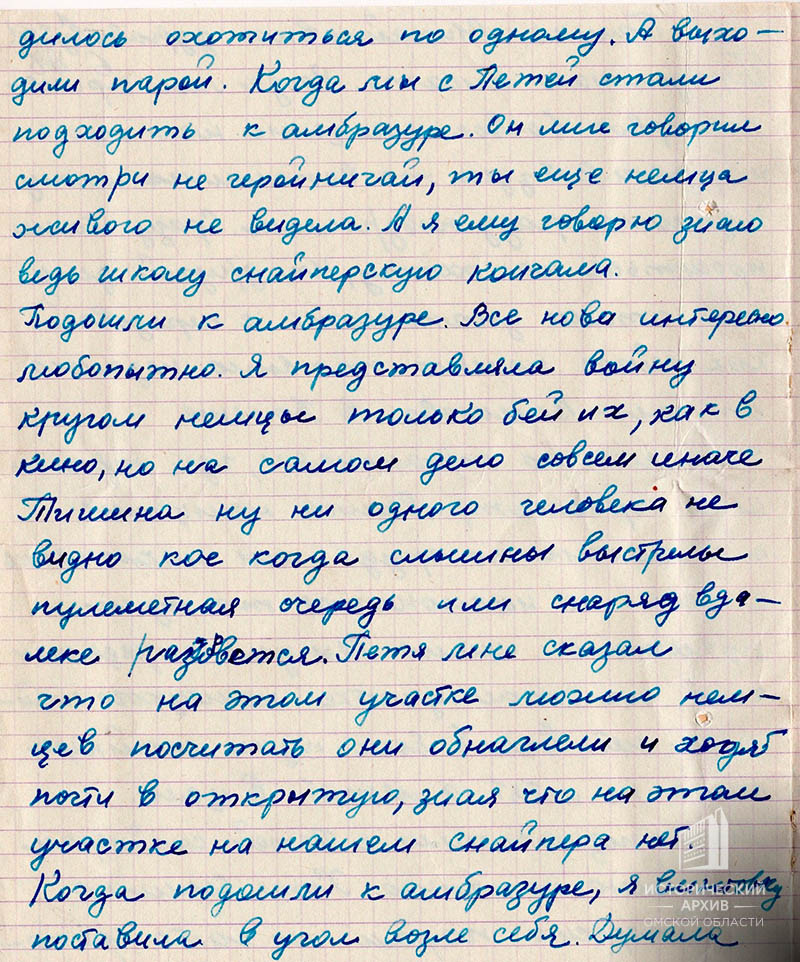 дилось охотиться по одному. А выхо-
дили парой. Когда мы с Петей стали
подходить к амбразуре. Он мне говорил
смотри не геройничай, ты еще немца
живого не видела. А я ему говорю знаю
ведь школу снайперскую кончала.
Подошли к амбразуре. Все нова интересно
любопытно. Я представляла войну
кругом немцы только бей их, как в
кино, но на самом дело совсем иначе
Тишина ну ни одного человека не
видно кое когда слышны выстрелы
пулеметная очередь или снаряд вда-
леке разорвется. Петя мне сказал
что на этом участке можно нем-
цев посчитать они обнаглели и ходят
почти в открытую, зная что на этом
участке на нашем снайпера нет.
Когда подошли к амбразуре, я винтовку
поставила в угол возле себя. Думала
ИСТОРИЧЕСКИЙ
АРХИВ
ОМСКОЙ ОБЛАСТИ